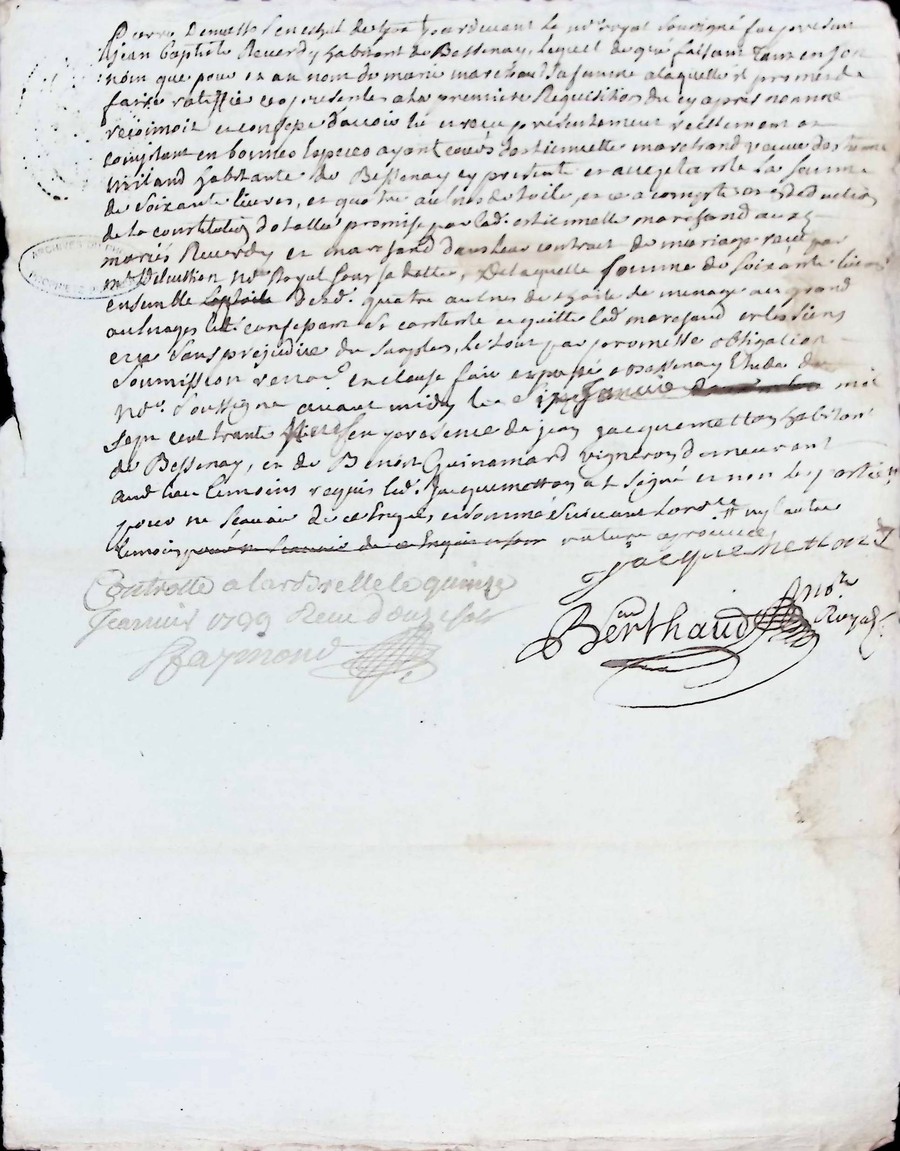 Pierre Demetts Senechal de Lyon pardevant le no.re royal soussigné fut present
Jean Baptiste Reverdy habitant de Bessenay, lequel de gre faisant tant en son
nom que pour et au nom de marie marchand sa femme a laquelle il promet de
faire ratiffie ces presentes a la premiere Requisition du cy apres nommé
reconnoit et confesse d'avoir hu et receu presentement reellement et
comptant en bonnes especes ayant cours d'estiennette marchand veuve de
habitante de Bessenay cy presente et acceptante La somme
de soixante livres, et quatre aulnes de toile, et ce a compte et en deduction
de la constitution dotalle promise par lad. estiennette marchand auxd.
mariés Reverdy et marchand dans leur contract de mariage receu par
m.e No.re Royal sous sa datte, De laquelle somme de soixante livres
ensemble desd. quatre aulnes de toile de menage au grand
aulnages led. confessant est contente et quitte lad. marchand et les siens
et ce sans prejudice du surplus, le tout par promesse obligation
soumission renon.on et clause fait et passé a Bessenay Etude du
no.re soussigné avant midy le janvier mil
sept cent trente neuf en presence de jean jacquemetton habitant
de Bessenay, et de Benoist Guinamard vigneron demeurant
aud. lieu temoins requis led. Jacquemetton a signé et non les parties
pour ne scavoir de ce Enquis et sommé suivant l'ord.ce ny l'autre
temoin pour ne scavoir de ce Enquis et som rature aprouvée
jacquemetton
Controllé a larbrelle le quinze
Janvier 1739 Receu douze sols
Raymond
Berthaud no.re
Royal